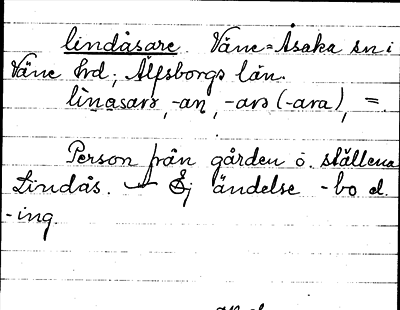 lindåsare. Väne-Åsaka sn i
Väne hd; Älfsborgs län.
linasarə, -an, -arə (-ara), =.
Person från gården o. ställena
Lindås. — Ej ändelse -bo el.
-ing.